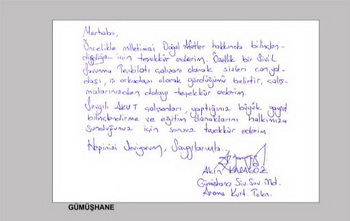 Merhaba,
Öncelikle milletimizi Doğal Afetler hakkında bilinçlen-
dirdiğiniz için teşekkür ederim. Özellikle bir Sivil
Savunma Teşkilatı çalışanı olarak sizleri can yol-
daşı, iş arkadaşı olarak gördüğümü belirtir, çalış-
malarınızdan dolayı teşekkür ederim.
Sevgili AKUT çalışanları, yaptığınız büyük gayret
bilinçlendirme ve eğitim olanaklarını halkımıza
sunduğunuz için sonsuz teşekkür ederim.
Hepinizi Seviyorum, Saygılarımla...
Akın KARAGÖZ
Gümüşhane Siv. Sav. Müd.
Arama Kurt. Tekn.
GÜMÜŞHANE